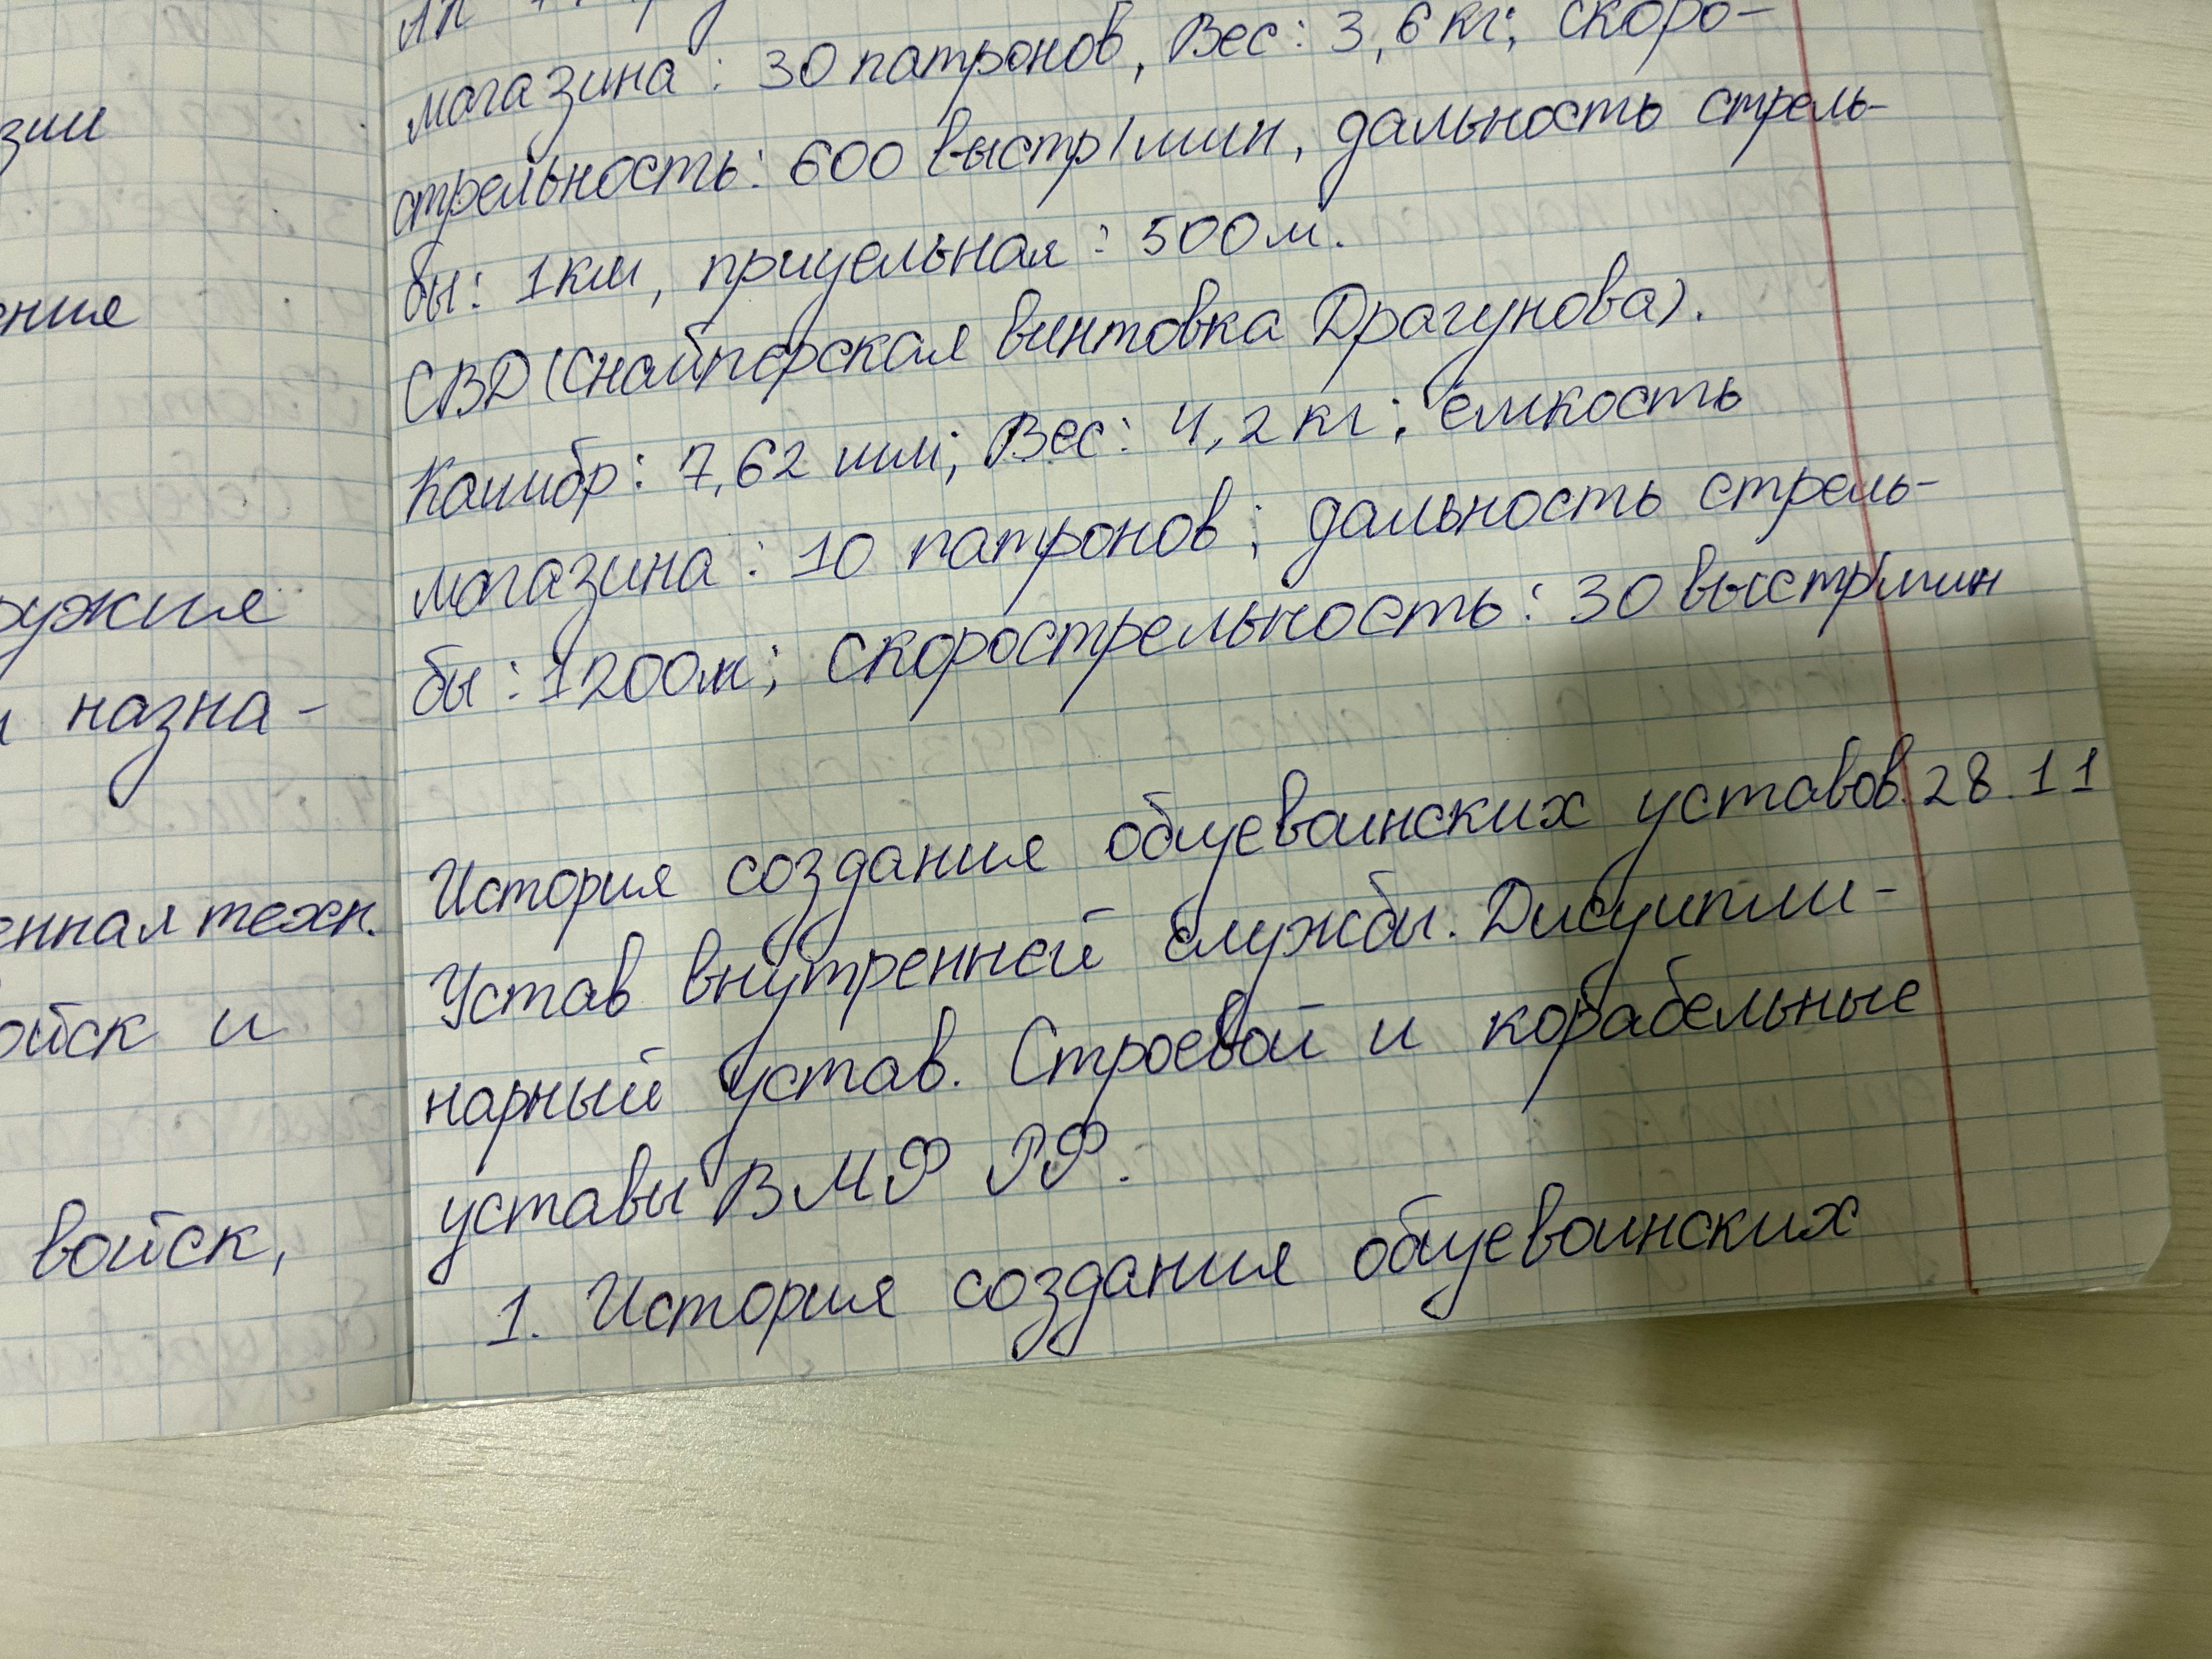 зии
ения
ружия
назна-
енная техн.
ойск и
войск,
магазина: 30 патронов, Вес: 3,6 кг; скоро-
стрельность: 600 выстр/мин, дальность стрель-
бы: 1 км, прицельная: 500 м.
СВД (Снайперская винтовка Драгунова).
Калибр: 7,62 мм; Вес: 4,2 кг; ёмкость
магазина: 10 патронов; дальность стрель-
бы: 1200м; скорострельность: 30 выстр/мин
История создания общевоинских уставов. 28.11
Устав внутренней службы. Дисципли-
нарный устав. Строевой и корабельные
уставы ВМФ РФ.
1. История создания общевоинских